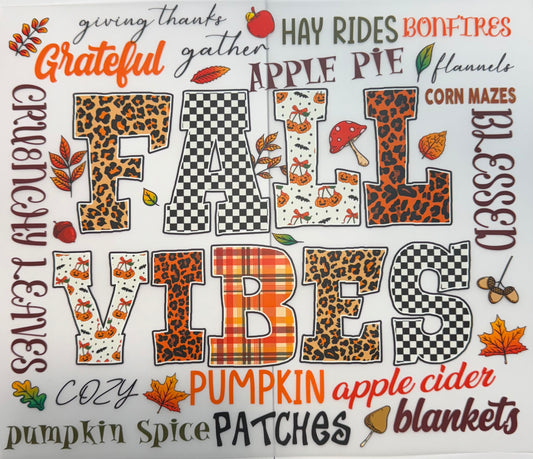 giving thanks
Grateful
gather
HAY RIDES
BONFIRES
APPLE PIE
flannels
CORN MAZES
CRUNCHY LEAVES
BLESSED
FALL
VIBES
COZY
PUMPKIN
apple cider
pumpkin spice
PATCHES
blankets